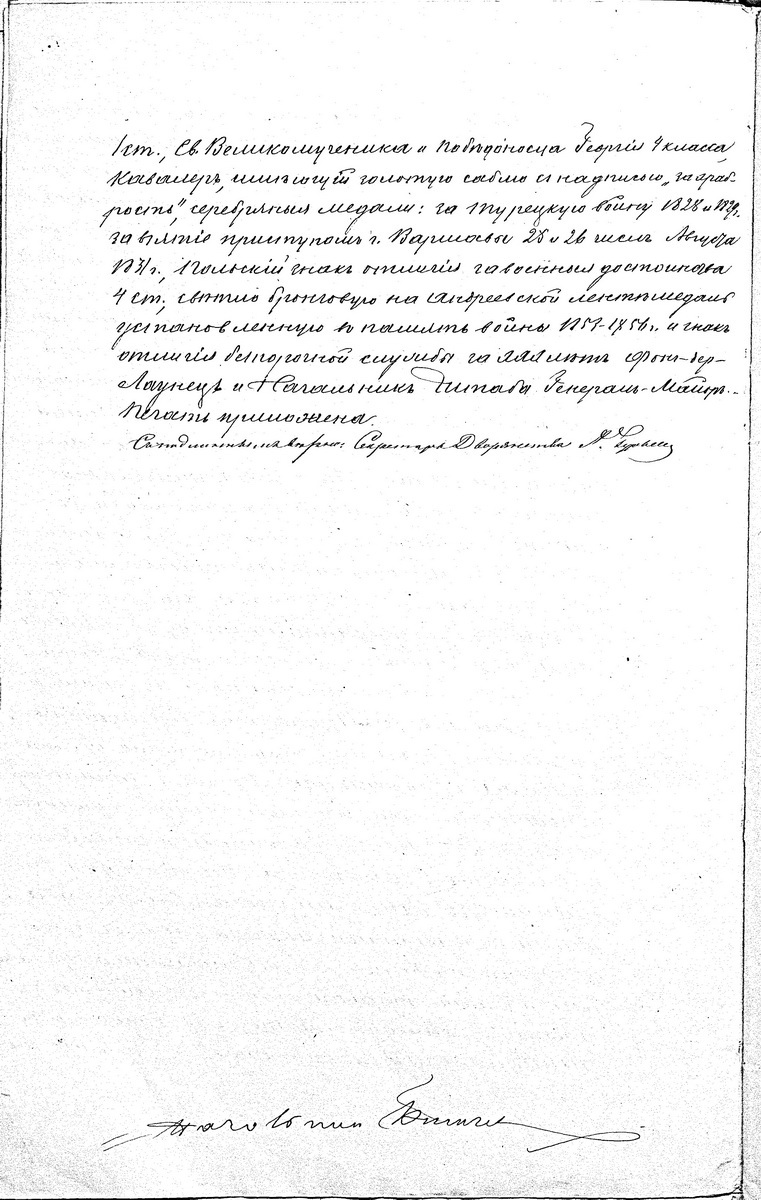 1 ст., Св. Великомученика и Победоносца Георгія 4 класса
Кавалеръ, имѣющій золотую саблю съ надписью „за храб-
рость“, серебряныя медали: за Турецкую войну 1828 и 1829 г.
за взятіе приступомъ г. Варшавы 25 и 26 числъ Августа
1831 г., Польскій знакъ отличія за военныя достоинства
4 ст., свѣтло бронзовую на Андреевской лентѣ медаль
установленную въ память войны 1853-1856 г. и знакъ
отличія безпорочной службы за XXX лѣтъ Фонъ-дер-
Лауницъ и Начальникъ Штаба Генералъ-Маіоръ.
Печать приложена.
Съ подлиннымъ вѣрно: Секретарь Дворянства А.